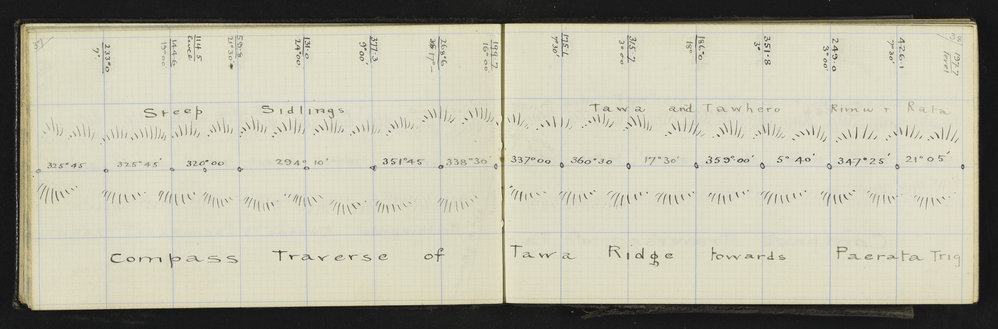 233.0
9°
144.6
19°00'
114.5
Level
59.8
21°30'
131.0
24°00'
377.3
9°00'
268.6
17°
199.7
16°00'
175.1
7°30'
315.7
2°00'
186.0
18°
351.8
3°
249.0
3°00'
426.1
7°30'
197.7
level
Steep Sidlings
Tawa and Tawhero Rimu & Rata
325°45 325°45' 320°00 294°10' 351°45 338°30' 337°00 360°30 17°30' 359°00' 5°40' 347°25' 21°05'
Compass Traverse of Tawa Ridge towards Paerata Trig